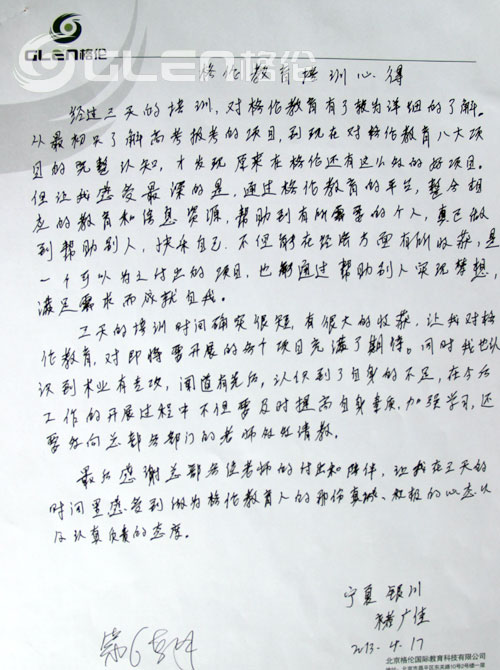 GLEN格伦
GLEN格伦
格伦教育培训心得
经过三天的培训,对格伦教育有了较为详细的了解。
从最初只了解高考报考的项目,到现在对格伦教育八大项
目的完整认知,才发现原来在格伦还有这么好的好项目。
但让我感受最深的是,通过格伦教育的平台,整合相
应的教育和信息资源,帮助到有所需要的个人,真正做
到帮助别人,快乐自己.不但能在经济方面有所收获,是
一个可以为之付出的项目,也能通过帮助别人实现梦想,
满足需求而成就自我。
三天的培训时间确实很短,有很大的收获,让我对格
伦教育,对即将要开展的每个项目充满了期待。同时我也认
识到术业有专攻,闻道有先后,认识到了自身的不足,在今后
工作的开展过程中不但要及时提高自身素质,加强学习,还
要多向总部各部门的老师们请教。
最后感谢总部各位老师的付出和陪伴,让我在三天的
时间里感受到做为格伦教育人的那份真诚、积极的心态以
及认真负责的态度。
宁夏 银川
广佳
2013.4.17
北京格伦国际教育科技有限公司